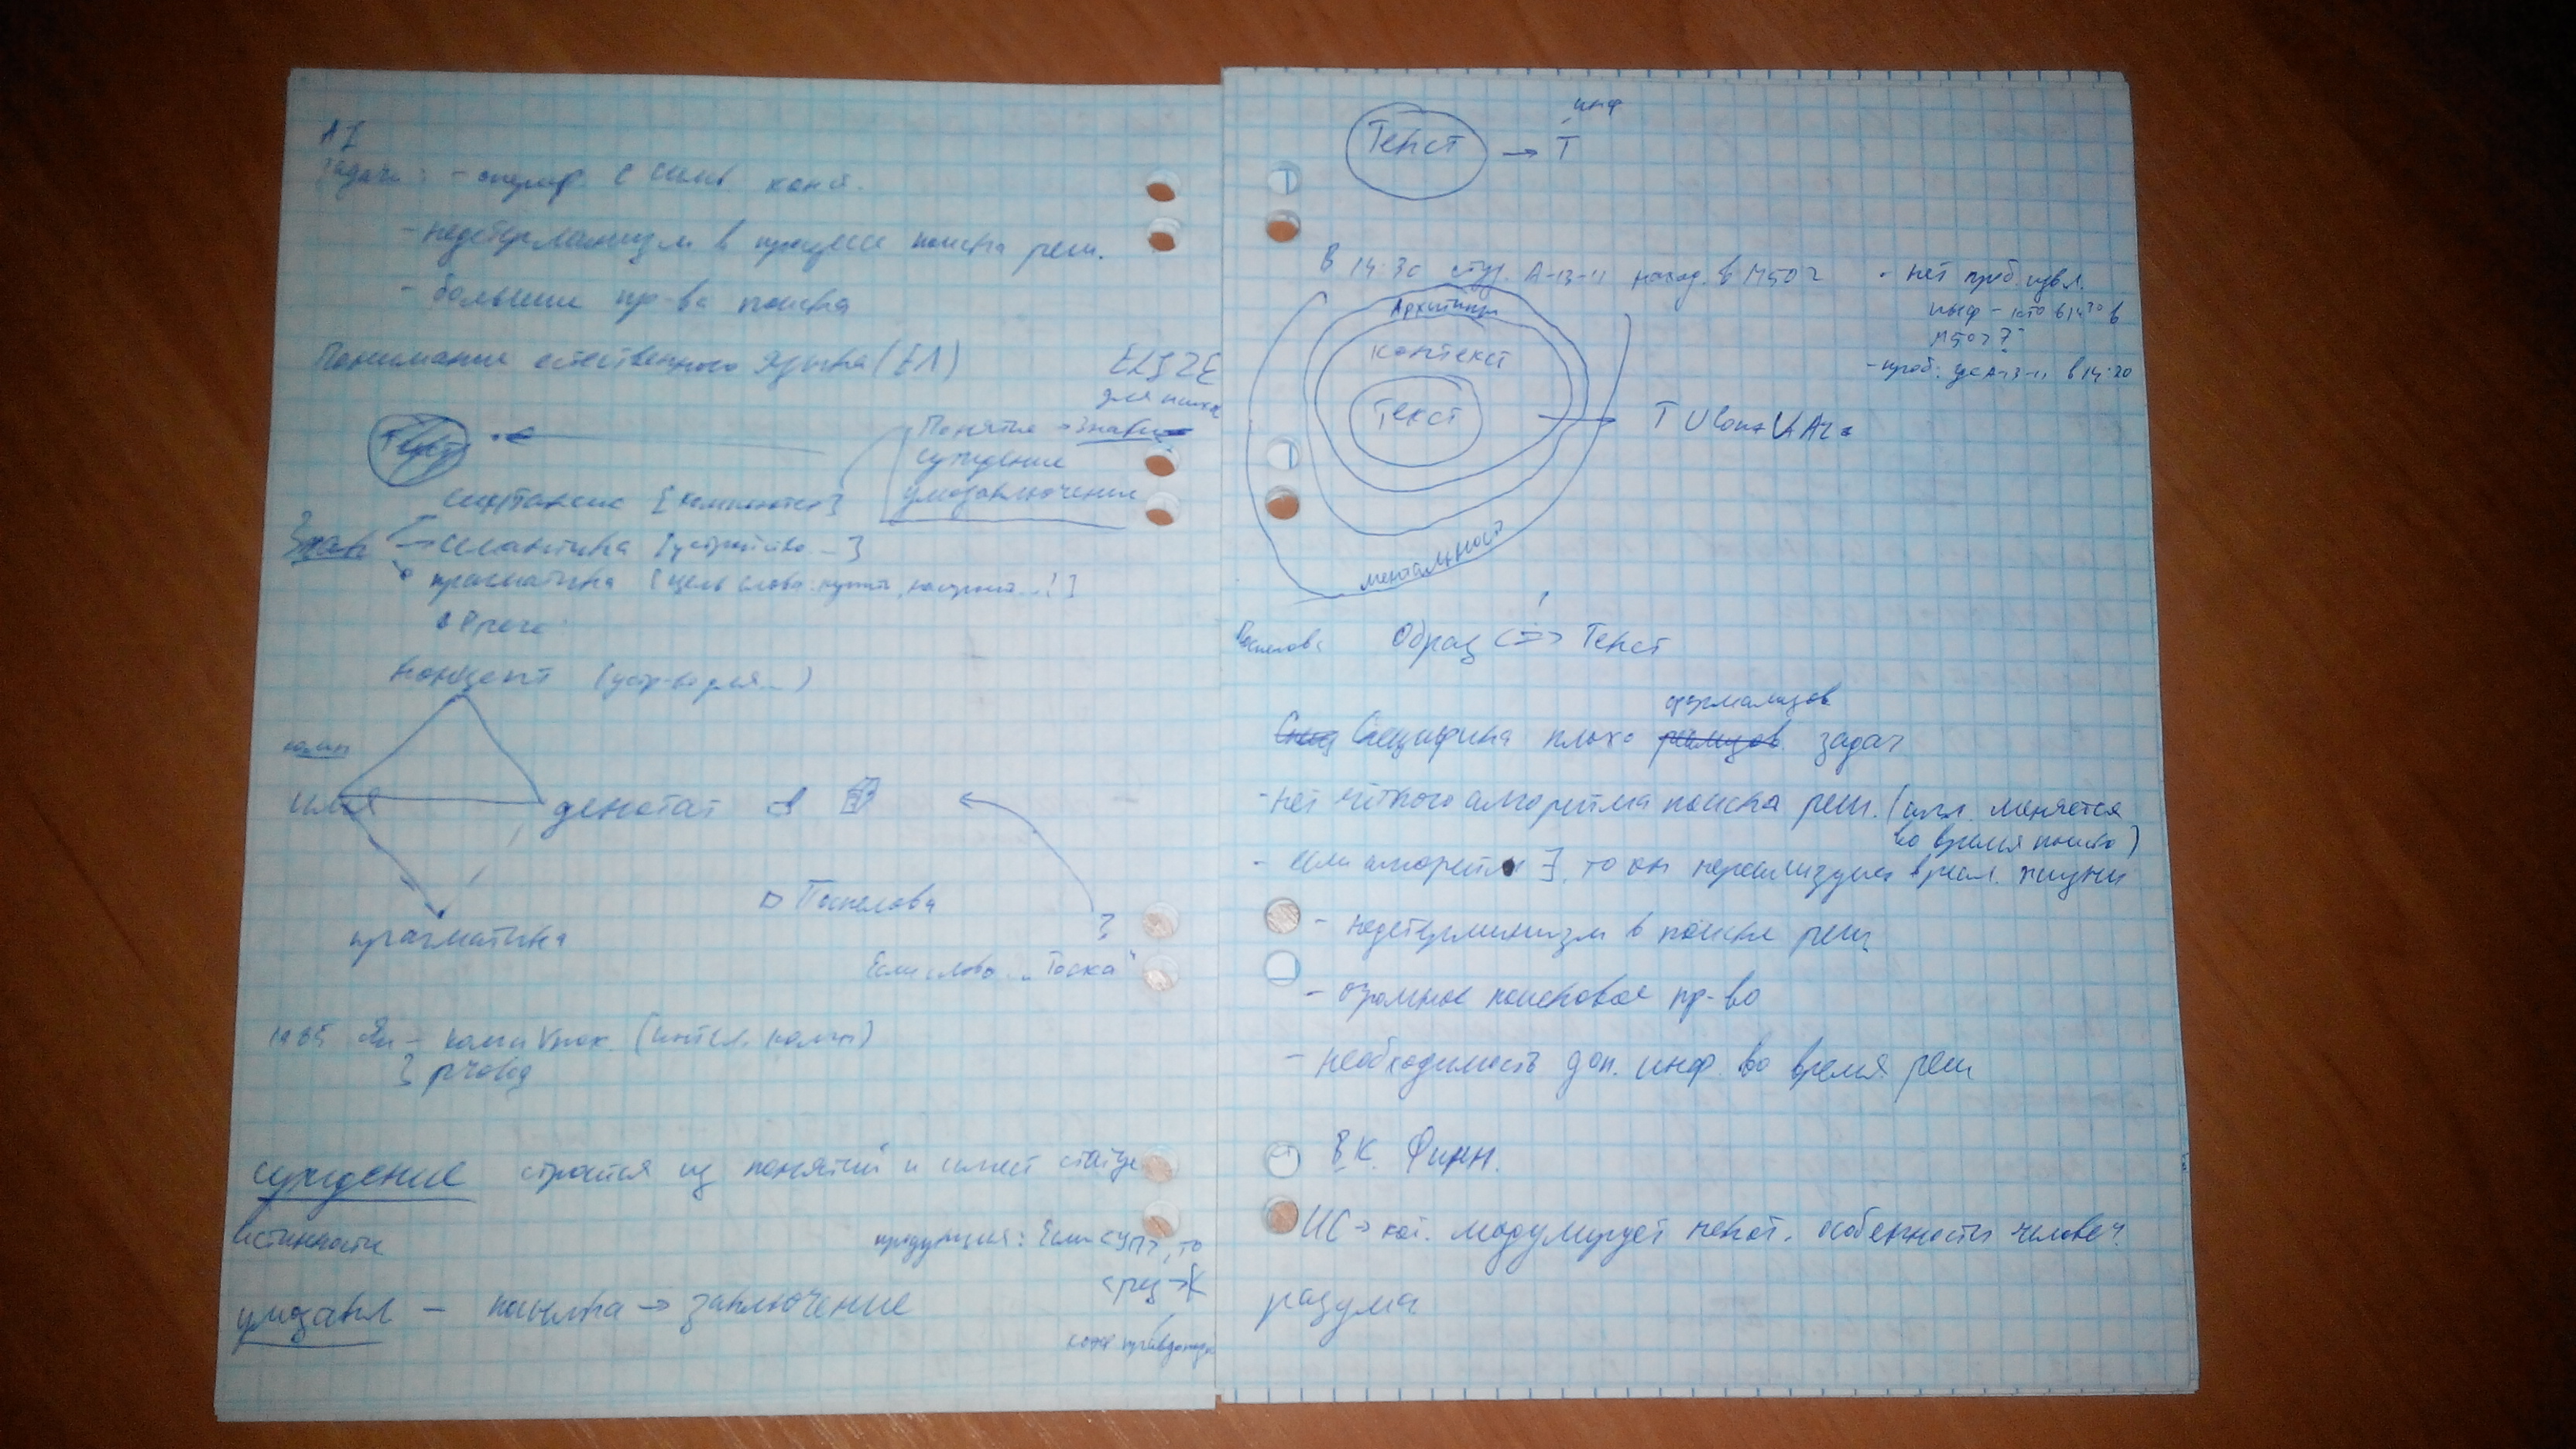 AI
Задачи: - операр. с симв. конст.
- недетерминизм в процессе поиска реш.
- большие пр-ва поиска
Понимание естественного языка (ЕЯ)
ELIZE
для психо
Текст
Понятие → Знак
суждение
умозаключение
синтаксис [компьютер]
Знак → семантика [устройство ...]
прагматика [цель слова: купить, настроить...!]
Фреге
концепт (устр-во для...)
комп
имя
денотат
прагматика
Поспелова
?
Если слово „Тоска"
1985 Яп - комп V пок. (интел. комп)
суждение строится из понятий и имеет статус
истинности
продукция: Если <усл>, то
<рез> K
коэф правдопод
умозакл - посылка → заключение
инф
Текст → T
В 14:30 студ. А-13-11 наход. в М502
- нет проб. извл.
инф - кто в 14 30 в
М502?
- проб: где А-13-11 в 14:30
Архетипы
контекст
Текст
→ T U Con U Ar
ментальност
Поспелов:
Образ <=> Текст
?
формализов
Специфика плохо задач
- нет чёткого алгоритма поиска реш. (алг. меняется
во время поиска)
- если алгоритм ∃, то он нереализуем в реал. жизни
- недетерминизм в поиске реш
- огромное поисковое пр-во
- необходимость доп. инф. во время реш
В.К. Финн.
ИС → кот. моделирует некот. особенности человеч.
разума